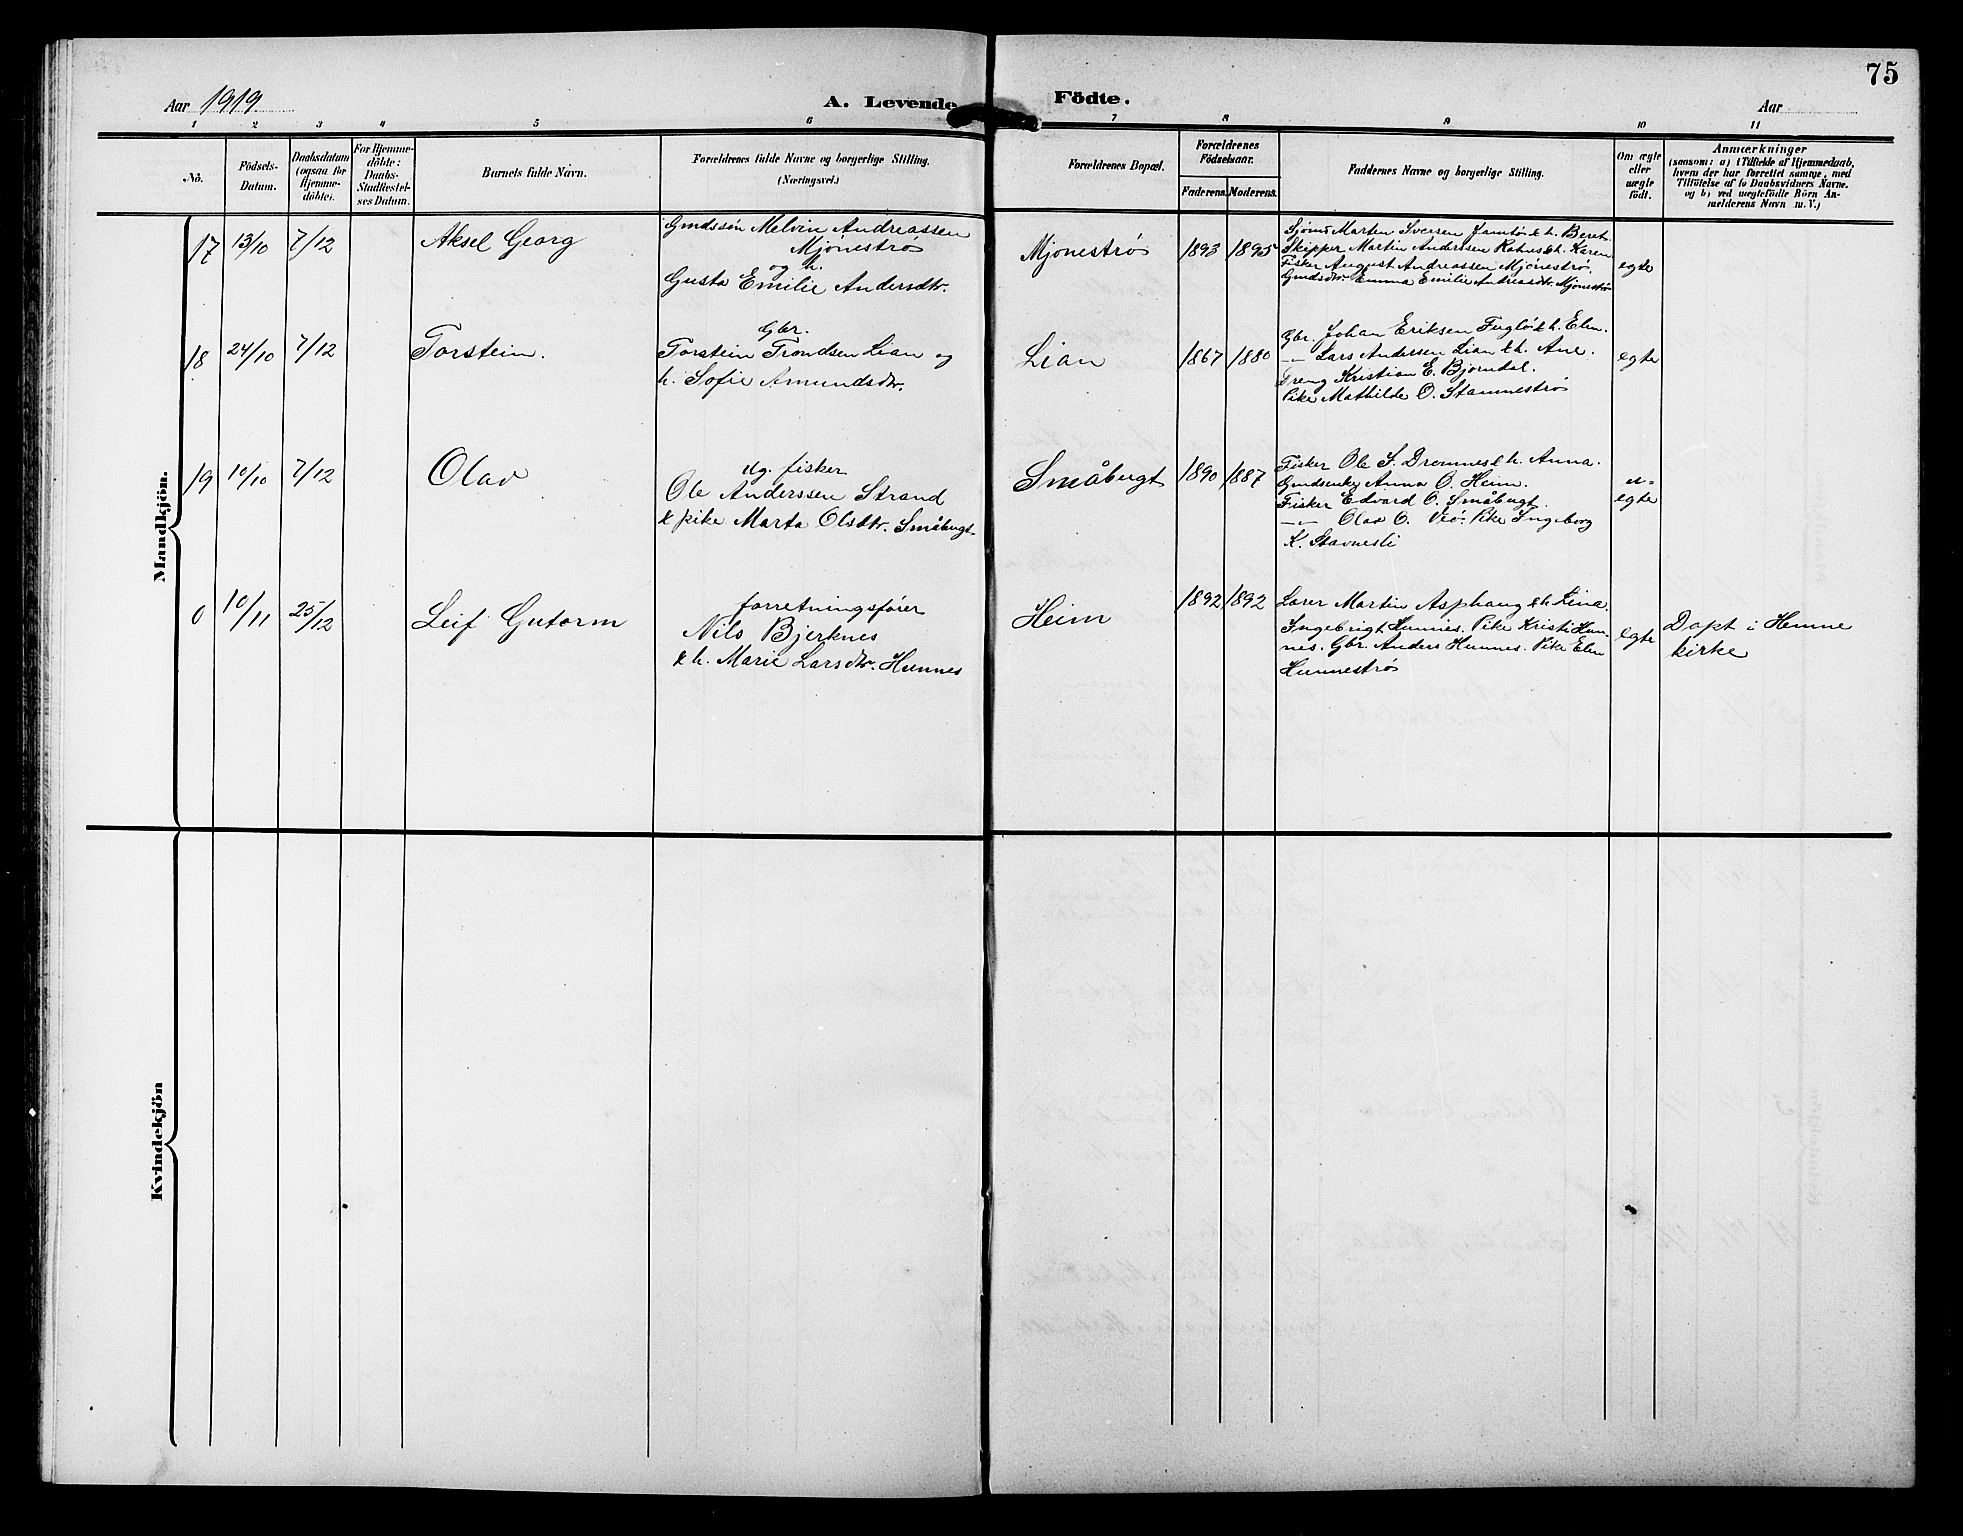 75
Aar 1919
A. Levende
Födte.
Aar
1 2 3 4 5 6 7 8 9 10 11
No.
Födsels-
Datum.
Daabsdatum
(ogsaa for
Hjemme-
döbte).
For Hjemme-
döbte:
Daabs-
Stadfæstel-
ses Datum.
Barnets fulde Navn.
Forældrenes fulde Navne og borgerlige Stilling.
(Næringsvei.)
Forældrenes Bopæl.
Forældrenes
Födselsaar.
Faderens. Moderens.
Faddernes Navne og borgerlige Stilling.
Om ægte
eller
uægte
födt.
Anmærkninger
(saasom: a) i Tilfælde af Hjemmedaab,
hvem der har forrettet samme, med
Tilföielse af to Daabsvidners Navne.
og b) ved uægtefödte Börn An-
melderens Navn m. V.)
Mandkjön.
17 13/10 7/12
Aksel Georg
Gmdssön Melvin Andreassen
Mjönestrø
og h.
Gusta Emilie Andersdtr.
Mjönestrø
1893 1895
Marten Iversen Jamtö & h. Beret.
Skipper Martin Anderssen h. Karen
Fisker August Andreassen Mjönestrø.
Gmdsdtr. Emma Emilie Andreasdtr. Mjönestrø
egte
18 24/10 7/12
Torstein.
Gbr.
Torstein Trondsen Lian og
h. Sofie Amundsdtr.
Lian
1867 1880
Gbr. Johan Eriksen Fuglö & h. Elen.
-"- Lars Andersen Lian & h. Ane.
Dreng Kristian E. Bjørndal.
Pike Mathilde O. Stamnestrø
egte
19 10/10 7/12
Olav
Ug. fisker
Ole Anderssen Strand
& pike Marta Olsdtr. Småbugt
Småbugt
1890 1887
Fisker Ole S. Dromnes & h. Anna.
Anna O. Heim.
Fisker Edvard O. Småbugt.
-"- Olav O. Veö. Pike Ingeborg
K. Stavnesli
u-
egte
0 10/11 25/12
Leif Gutorm
forretningsfører
Nils Bjerknes
& h. Marie Larsdtr. Hunnes
Heim
1892 1892
Lærer Martin Asphaug & h. Lina.
Ingebrigt Hunnes. Pike Kristi Hun-
nes. Gbr. Anders Hunnes. Pike Elen
Hunnestrø
egte
Døpt i Hemne
kirke
Kvindekjön